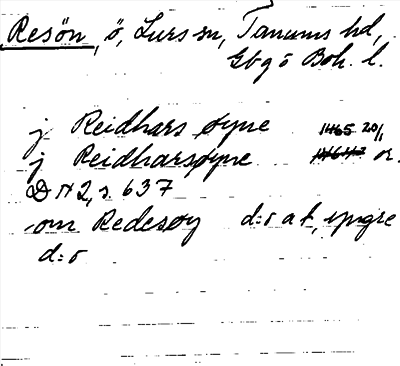 Resön, ö, Lurs sn, Tanums hd,
Gbg o Boh. l.
j Reidhars øyne 1465 20/1
j Reidharsøyne or.
DN 2, s. 637
om Redesøy d:o at, yngre
d:o